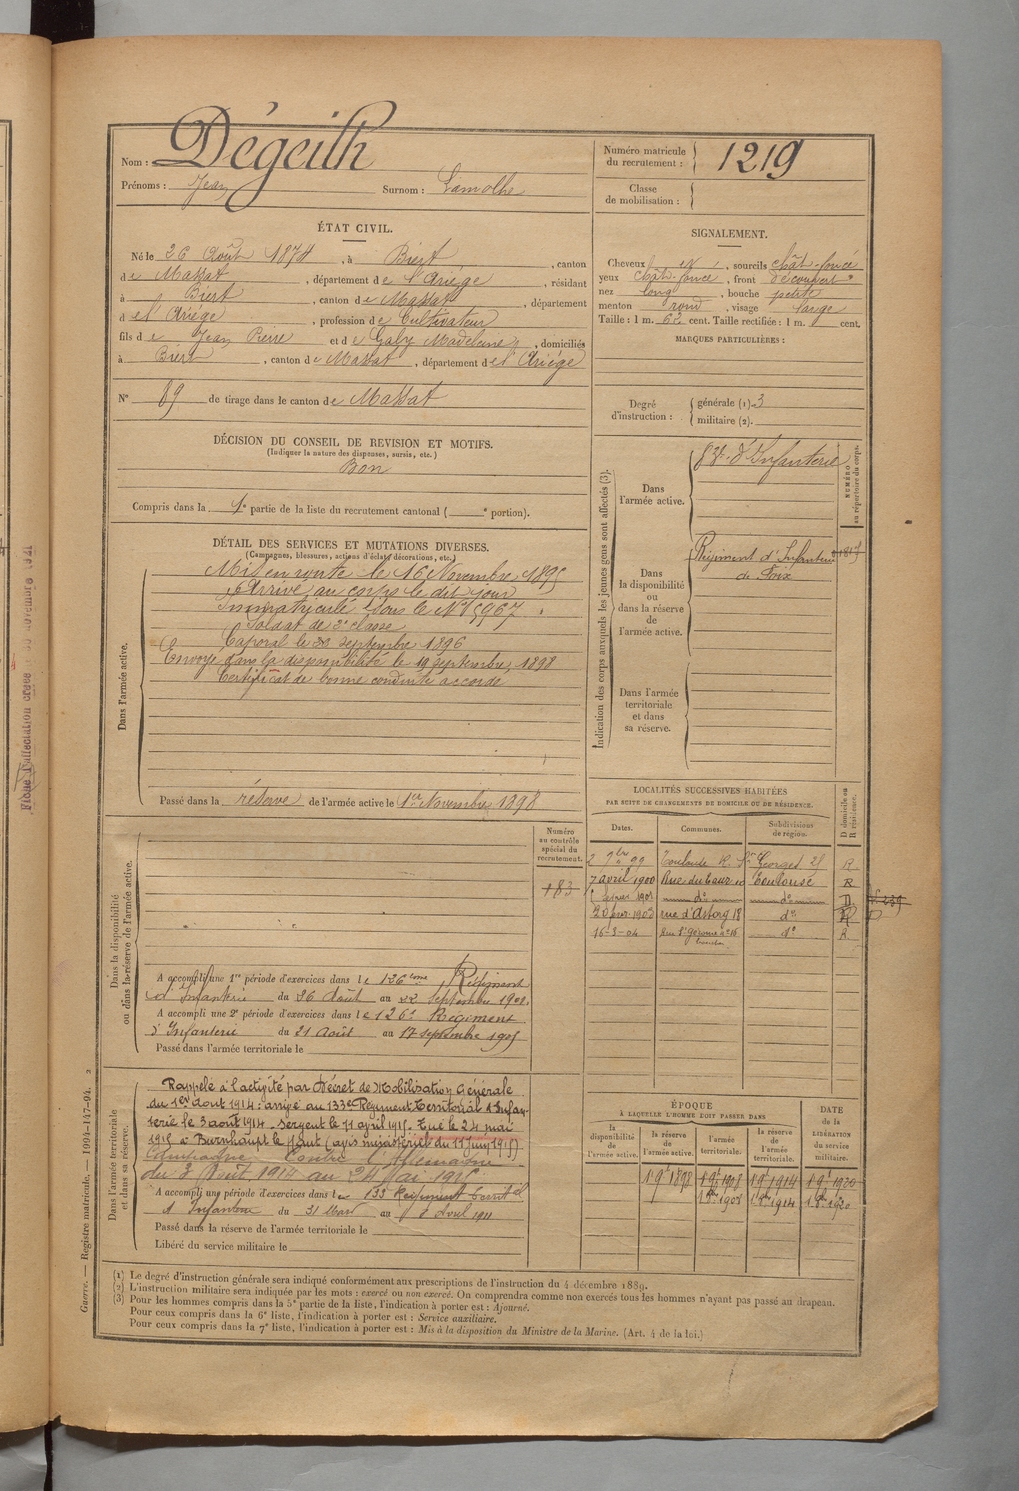 Nom : Dégeilh
Prénoms : Jean Surnom : Lamothe
Numéro matricule du recrutement : 1219
Classe de mobilisation :
ÉTAT CIVIL.
Né le 26 Août 1874, à Biert, canton
de Massat, département de l'Ariège, résidant
à Biert, canton de Massat, département
d el'Ariège, profession de Cultivateur
fils de Jean Pierre et de Galy Madeleine, domiciliés
à Biert, canton de Massat, département de l'Ariège
N° 89 de tirage dans le canton de Massat
SIGNALEMENT.
Cheveux et, sourcils chât-foncé
yeux chât-foncé, front découvert
nez long, bouche petite
menton rond, visage large
Taille : 1 m. 62 cent. Taille rectifiée : 1 m. cent.
MARQUES PARTICULIÈRES :
Degré d'instruction : générale (1). 3
militaire (2).
DÉCISION DU CONSEIL DE REVISION ET MOTIFS.
(Indiquer la nature des dispenses, sursis, etc.)
Bon
Compris dans la 1e partie de la liste du recrutement cantonal ( e portion).
DÉTAIL DES SERVICES ET MUTATIONS DIVERSES.
(Campagnes, blessures, actions d'éclat, décorations, etc.)
Dans l'armée active.
Mis en route le 16 Novembre 1895
Arrivé au corps le dit jour
Immatriculé sous le N° 5967
Soldat de 2e classe
Caporal le septembre 1896
Envoyé dans la disponibilité le 19 septembre 1898
Certificat de bonne conduite accordé
Passé dans la réserve de l'armée active le 1er Novembre 1898
Indication des corps auxquels les jeunes gens sont affectés (3).
NUMÉRO au répertoire du corps.
Dans l'armée active.
83e d'Infanterie
Dans la disponibilité ou dans la réserve de l'armée active.
Régiment d'Infanterie
de Foix
Dans l'armée territoriale et dans sa réserve.
LOCALITÉS SUCCESSIVES HABITÉES
PAR SUITE DE CHANGEMENTS DE DOMICILE OU DE RÉSIDENCE.
D domicile ou R résidence.
Dates. Communes. Subdivisions de région.
2 9bre 99 Toulouse R. St Georges 25 R
7 avril 1900 Rue du Taur 10 Toulouse R
1901 do do D
1903 rue d'Astorg 18 do
16-3-04 Rue St Gérome n° 16 do R
Numéro au contrôle spécial du recrutement.
183
Dans la disponibilité ou dans la réserve de l'armée active.
A accompli une 1re période d'exercices dans le 126ème Régiment
d'Infanterie du 26 Août au 22 septembre 1901.
A accompli une 2e période d'exercices dans le 126e Régiment
d'Infanterie du 21 Août au 17 septembre 1905
Passé dans l'armée territoriale le
Dans l'armée territoriale et dans sa réserve.
Rappelé à l'activité par Décret de Mobilisation Générale
du 1er août 1914 : arrivé au 133e Régiment Territorial d'Infan-
terie le 3 août 1914 - Sergent le 11 avril 1915. Tué le 24 mai
1915 à Burnhaupt le Haut (avis ministériel du 11 juin 1915)
Campagne Contre l'Allemagne
du 3 Août 1914 au 24 Mai 1915
A accompli une période d'exercices dans le 133 Régiment Territal
d'Infanterie du 31 Mars au 8 Avril 1911
Passé dans la réserve de l'armée territoriale le
Libéré du service militaire le
ÉPOQUE
À LAQUELLE L'HOMME DOIT PASSER DANS
DATE de la LIBÉRATION du service militaire.
la disponibilité de l'armée active.
la réserve de l'armée active.
l'armée territoriale.
la réserve de l'armée territoriale.
1 9e 1898 1 9e 1908 1 9e 1914 1 9e 1920
(1) Le degré d'instruction générale sera indiqué conformément aux prescriptions de l'instruction du 4 décembre 1889.
(2) L'instruction militaire sera indiquée par les mots : exercé ou non exercé. On comprendra comme non exercés tous les hommes n'ayant pas passé au drapeau.
(3) Pour les hommes compris dans la 5e partie de la liste, l'indication à porter est : Ajourné.
Pour ceux compris dans la 6e liste, l'indication à porter est : Service auxiliaire.
Pour ceux compris dans la 7e liste, l'indication à porter est : Mis à la disposition du Ministre de la Marine. (Art. 4 de la loi.)
Guerre. — Registre matricule. — 1094-147-94. 2